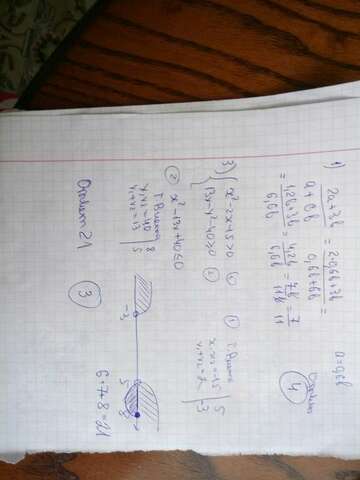 1) (2a+3b)/(a+0,b) = (2·0,6b+3b)/(0,6b+6b) = a=0,6b
= (1,2b+3b)/(6,6b) = 4,2b/6,6b = 7b/11b = 7/11
4
3) { x²-2x+5>0 ①
13x-x²-40≥0 ②
① т. Виета
x₁x₂=-15 | 5
x₁+x₂=2 | -3
② x²-13x+40≤0
т. Виета
x₁x₂=40 | 8
x₁+x₂=13 | 5
-3 5 8
6+7+8=21
21
③